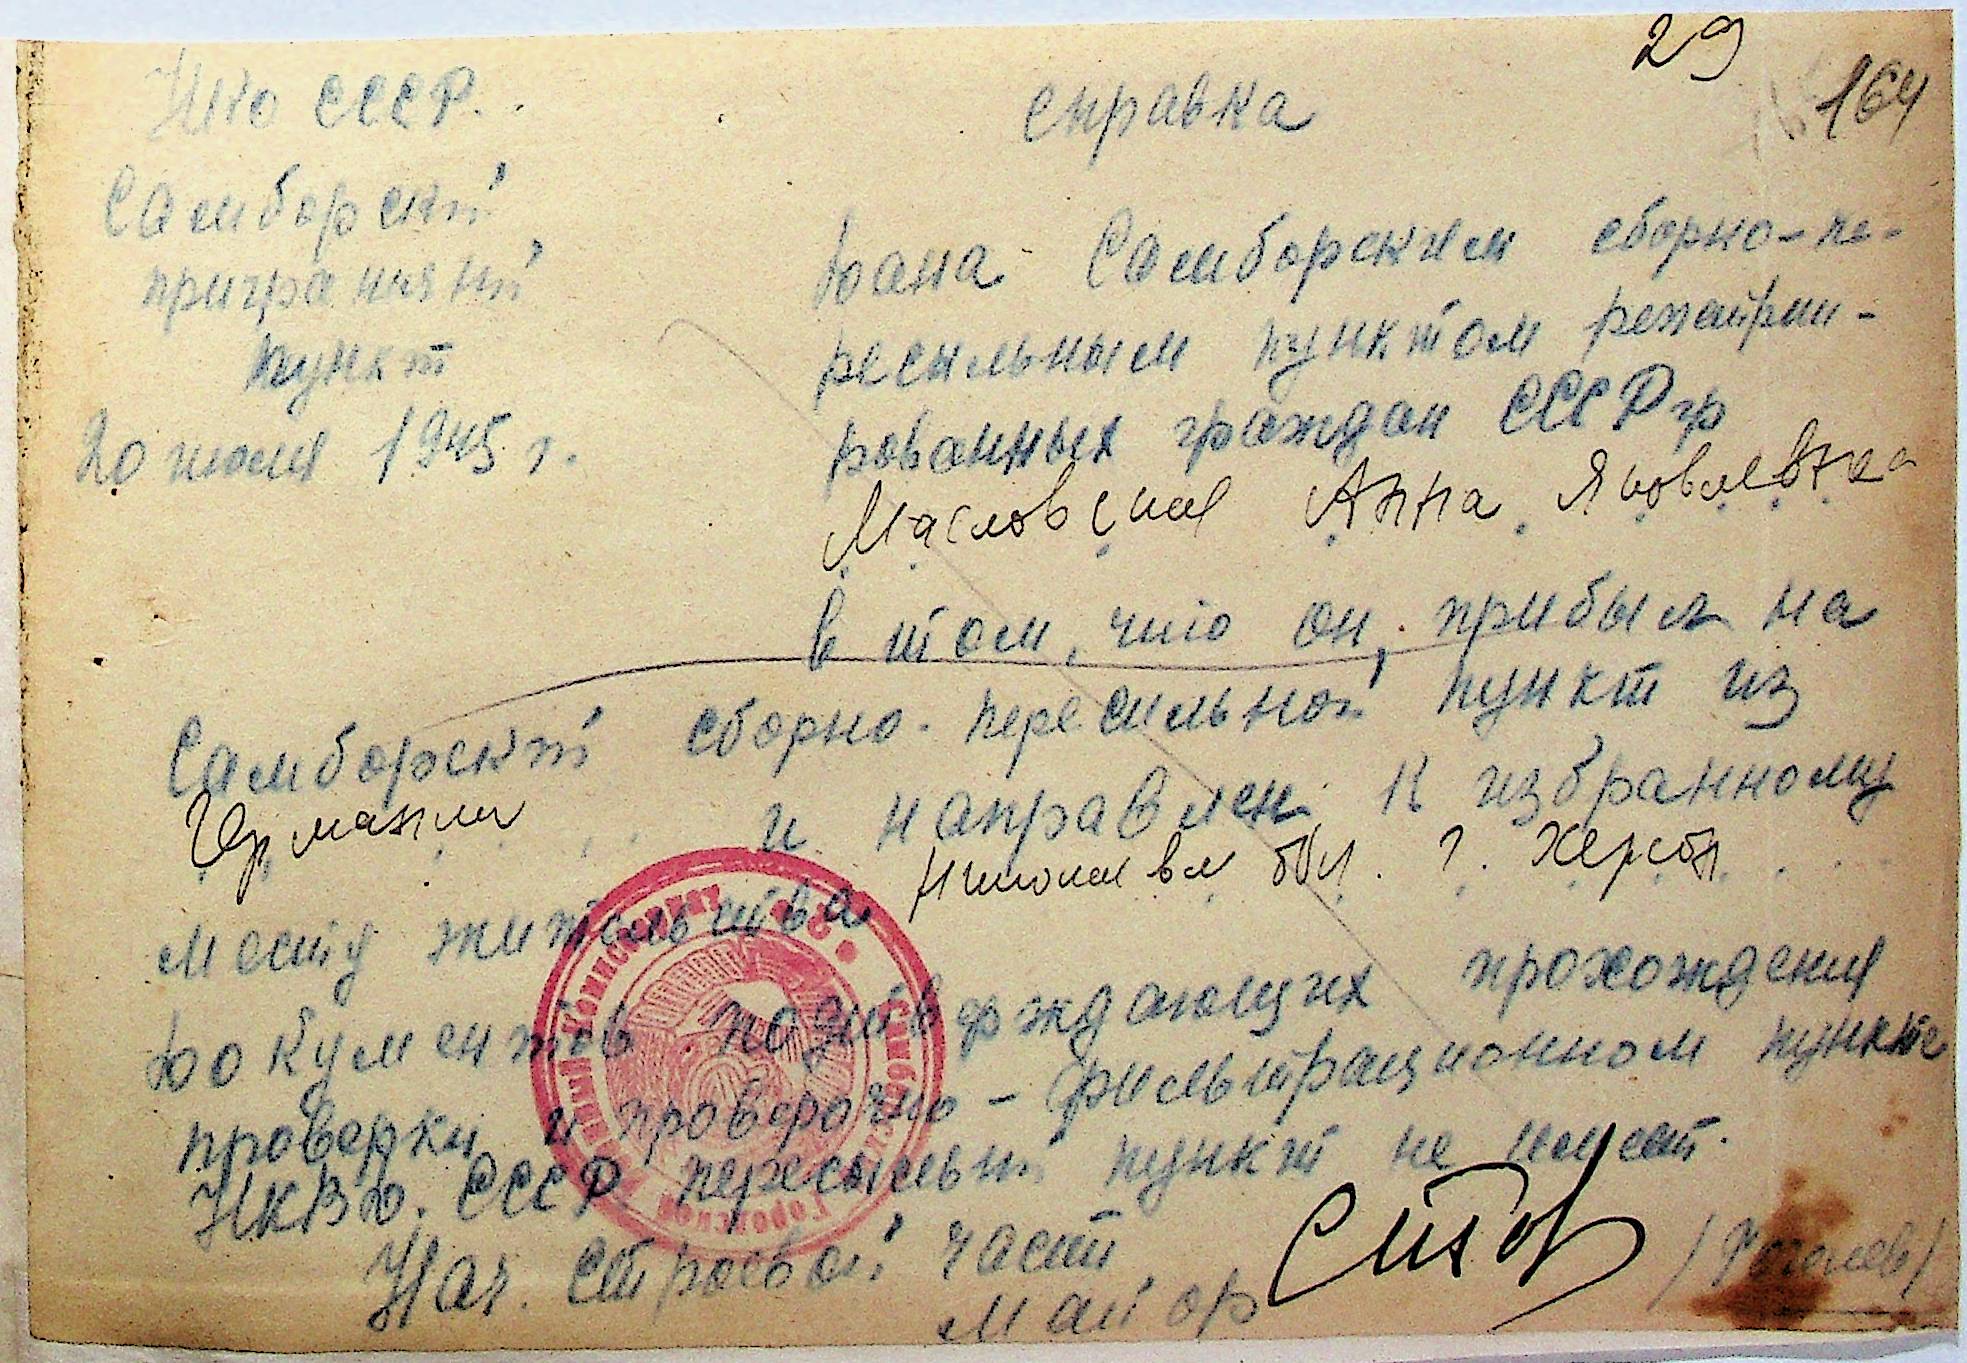 29
164
НКО СССР.
Справка
Самборский
приграничный
пункт
20 июля 1945 г.
Дана Самборским сборно-пе-
ресильным пунктом репатрии-
рованных граждан СССР гр
Масловская Анна Яковлевна
в том, что он, прибыл на
Самборский сборно-пересильной пункт из
Германии и направлен к избранному
месту жительства Николаевск обл. г. Херсон
Документов подтверждающих прохождения
проверки и проверочно-фильтрационном пункте
НКВД. СССР пересыльн пункт не имеет.
Нач. Строевой части
Майор
Народный Комиссариат
Самборский
Городской